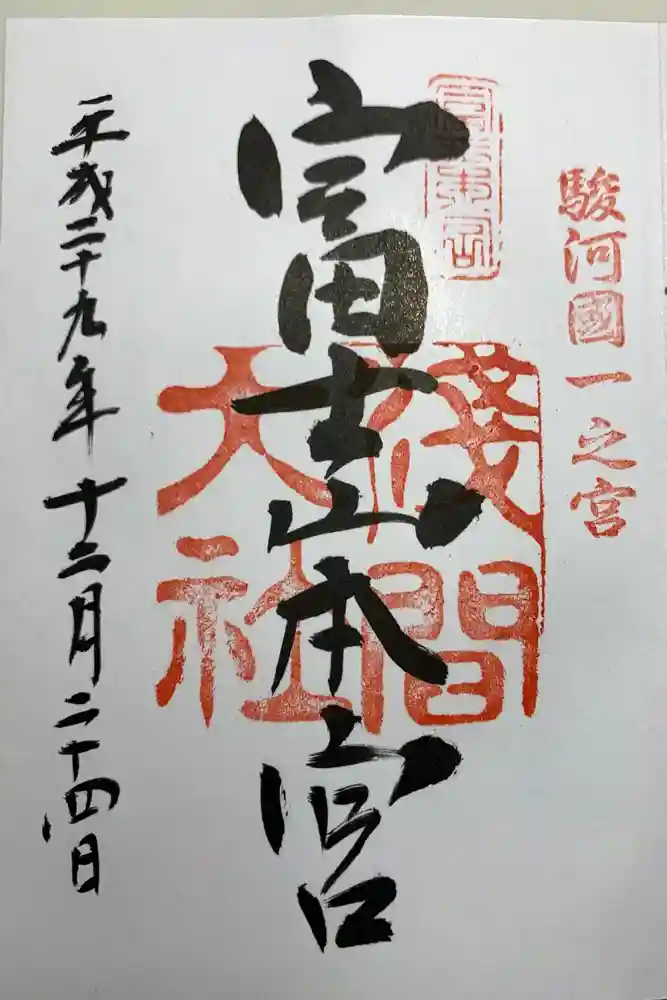 駿河國一之宮
富士山本宮
淺間大社
平成二十九年十二月二十四日